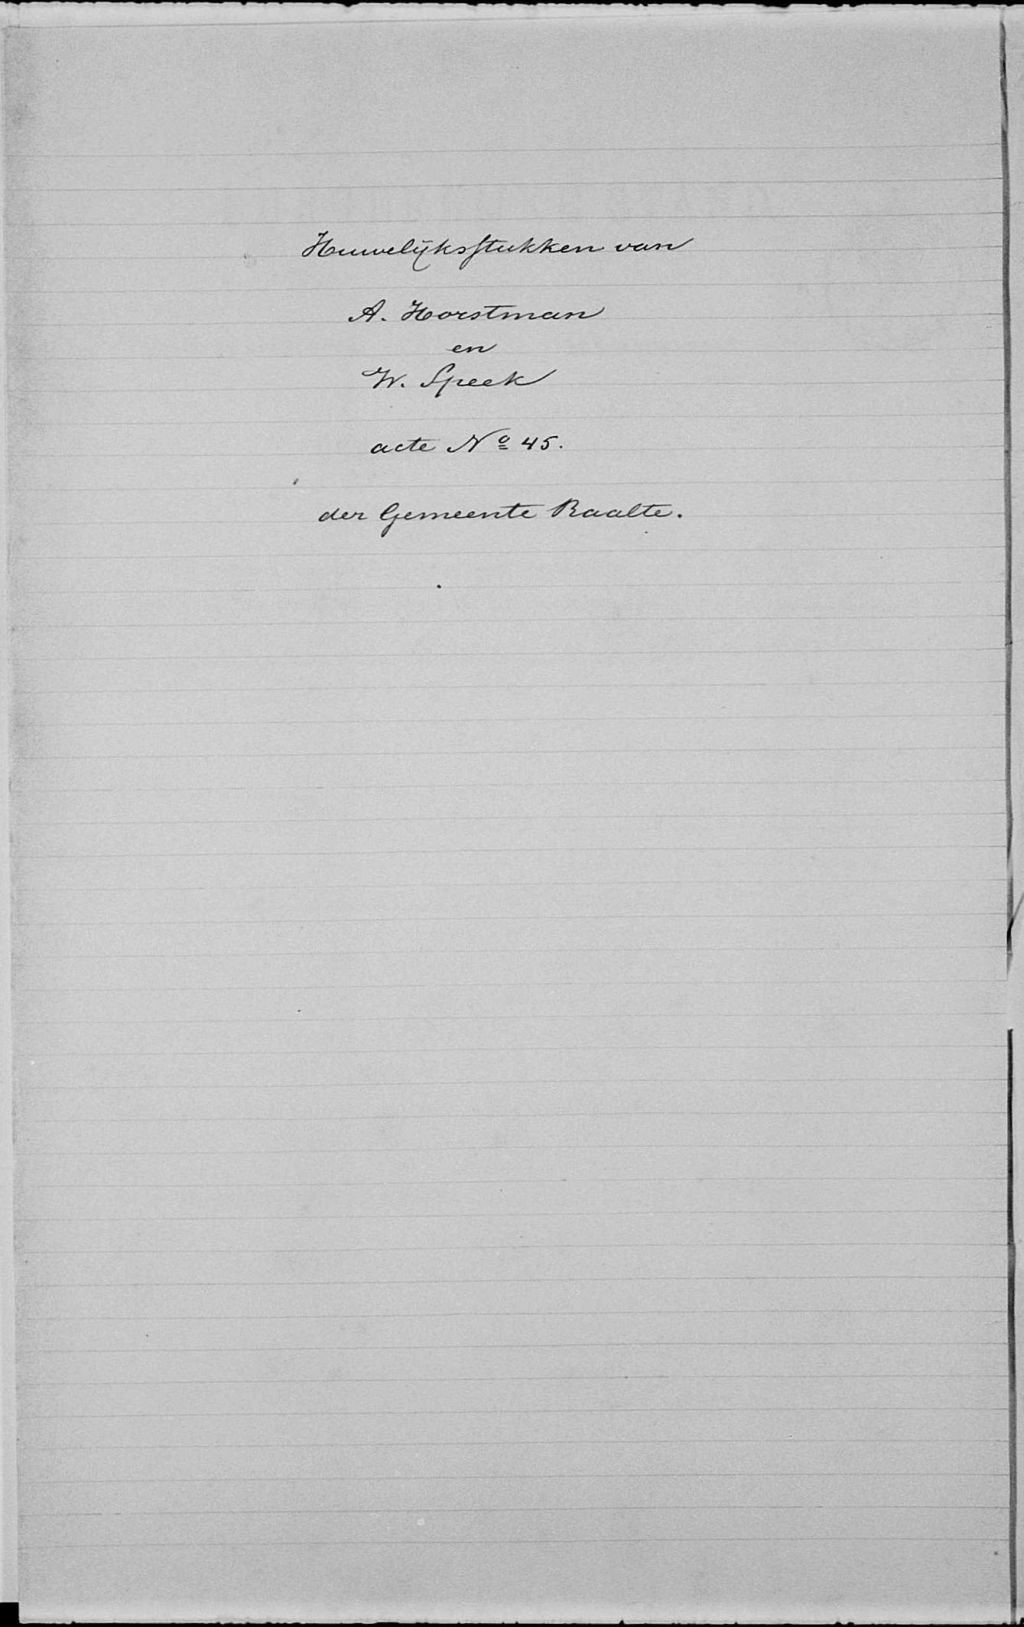 Huwelijksstukken van
A. Horstman
en
W. Speek
acte Nº 45.
der Gemeente Raalte.